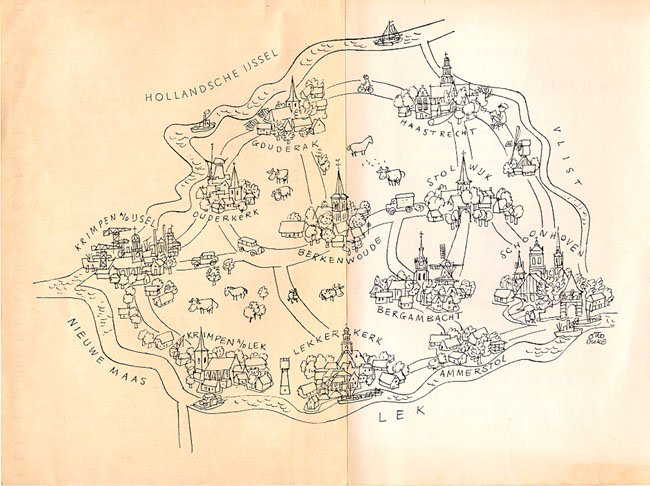 HOLLANDSCHE IJSSEL
GOUDERAK
HAASTRECHT
VLIST
STOLWIJK
OUDERKERK
KRIMPEN A/D IJSEL
BERKENWOUDE
SCHOONHOVEN
BERGAMBACHT
NIEUWE MAAS
KRIMPEN A/D LEK
LEKKERKERK
AMMERSTOL
LEK